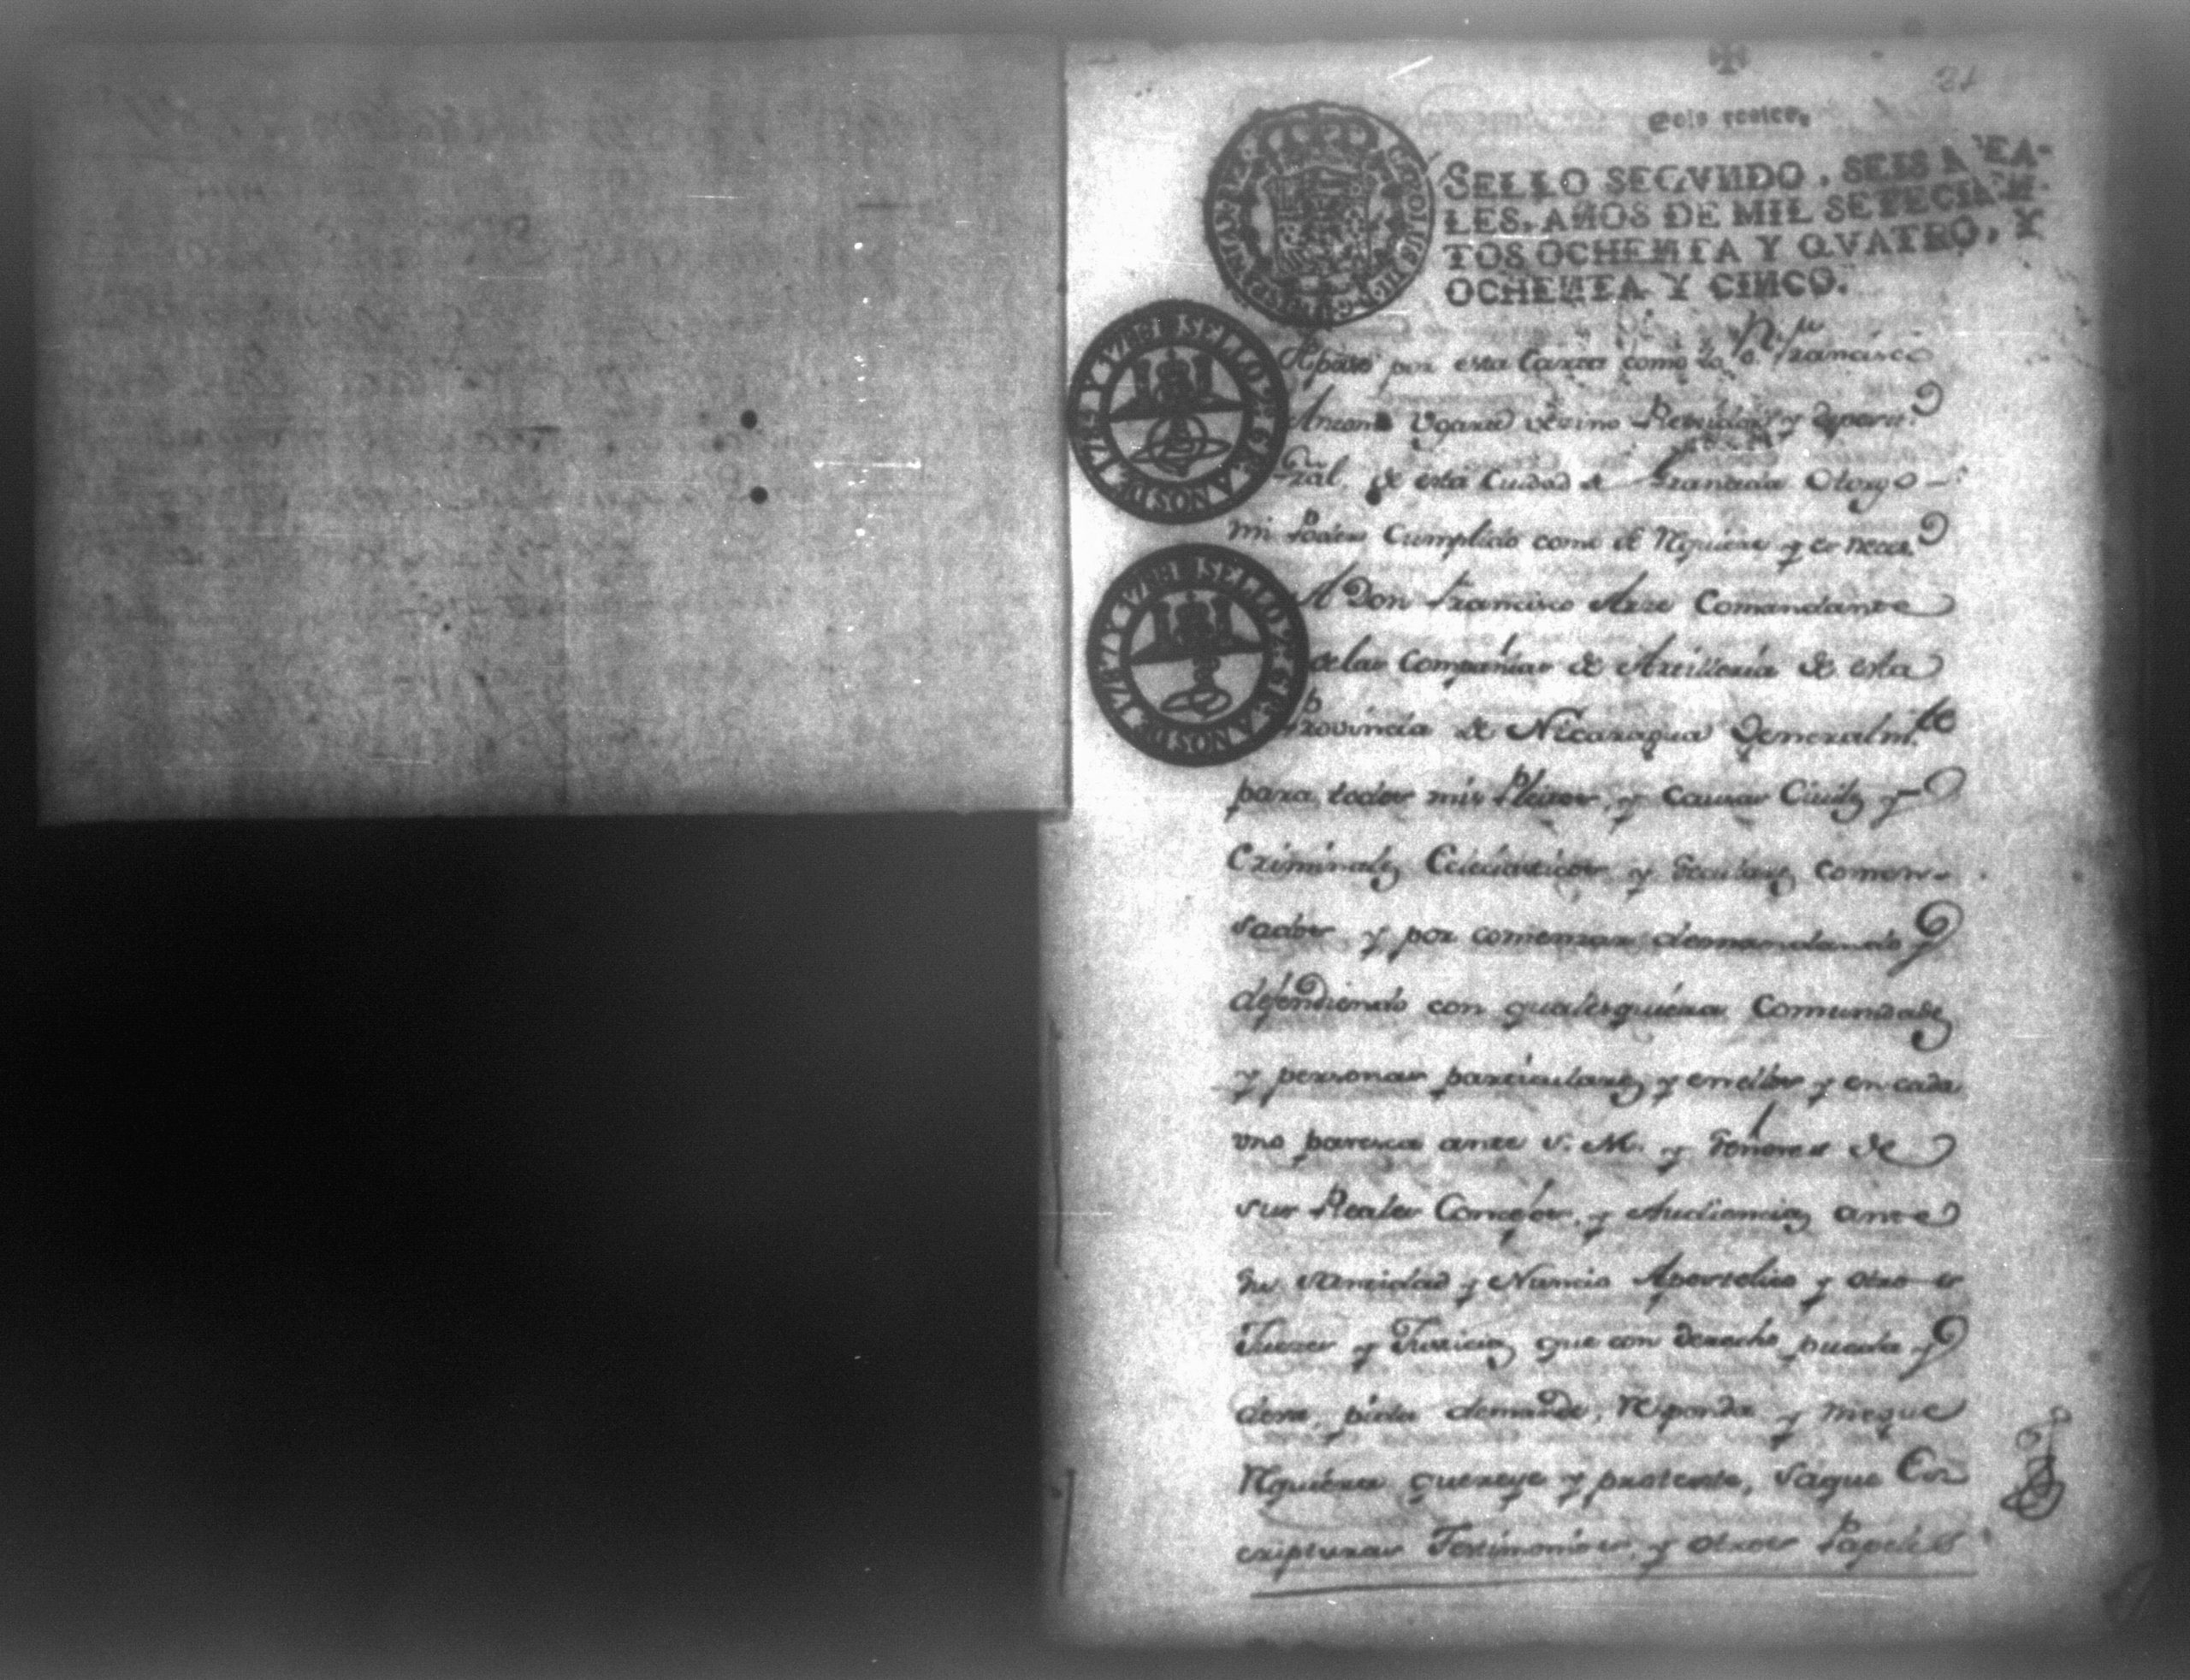 31
Seis reales,
SELLO SEGVNDO, SEIS REA-
LES, AÑOS DE MIL SETECIEN-
TOS OCHENTA Y QVATRO, Y
OCHENTA Y CINCO.
CAROLUS III
SELLO 2º 6 Rs AÑOS DE 1787 Y 1788
SELLO 2º 6 Rs AÑOS DE 1787 Y 1788
por esta Carta como Yo Dn Francisco
Antonio Ugarte vecino Regidor y deposit.o
Gral. de esta Ciudad de Granada Otorgo
mi Poder Cumplido como se Requiere y es neces.o
A Don Francisco Arze Comandante
delas Compañias de Artilleria de esta
Provincia de Nicaragua Generalm.te
para todos mis Pleitos, y causas Civiles y
Criminales Eclesiasticos y Seculares comen-
sados y por comenzar demandando y
defendiendo con qualesquiera Comunidades
y personas particulares y en ellos y en cada
uno paresca ante S. M. y Señores de
sus Reales Consejos, y Audiencias ante
Su Santidad y Nuncio Apostolico y otros
Juezes y Justicias que con derecho pueda y
deva, pida demande, Responda y niegue
Requiera querelle y proteste, saque Es
cripturas Testimonios, y otros Papeles